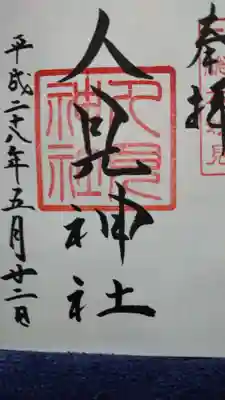 奉拝
人見神社
平成二十八年五月廿二日
人見
神社